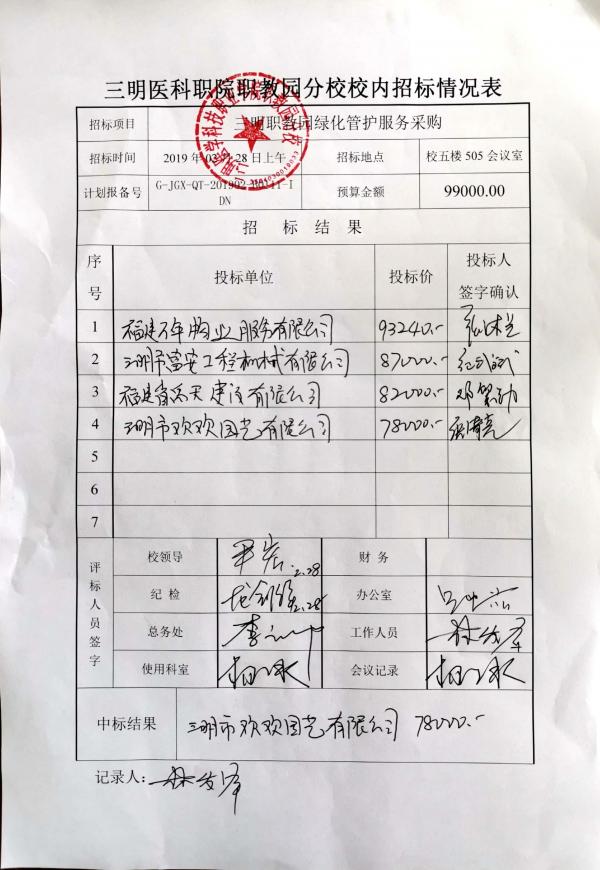 三明医科职院职教园分校校内招标情况表
招标项目 三明职教园绿化管护服务采购
招标时间 2019年 28日上午 招标地点 校五楼505会议室
计划报备号 G-JGX-QT-201902- 预算金额 99000.00
DN
招 标 结 果
序号 投标单位 投标价 投标人签字确认
1 福建 物业服务有限公司 93240.-
2 三明市富安工程机械有限公司 87000.-
3 福建省乐天建设有限公司 82000.-
4 三明市欢欢园艺有限公司 78000.-
5
6
7
评标人员签字
校领导 2.28 财务
纪检 2.28 办公室
总务处 工作人员
使用科室 会议记录
中标结果 三明市欢欢园艺有限公司 78000.-
记录人: